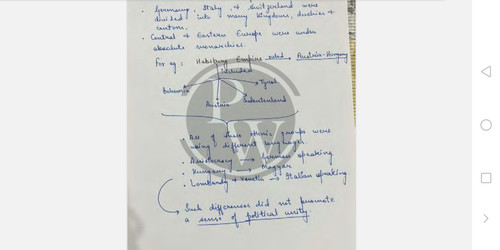 • Germany, Italy, & Switzerland were
divided into many kingdoms, duchies &
cantons.
• Central & Eastern Europe were under
absolute monarchies.
For eg: Habsburg Empire ruled → Austria-Hungary
included
Bohemia Tyrol
Austria Sudetenland
PW
• All of these ethnic groups were
using different languages
• Aristocracy → German speaking
• Hungary → Magyar
• Lombardy & Venetia → Italian speaking
→ Such differences did not promote
a sense of political unity.